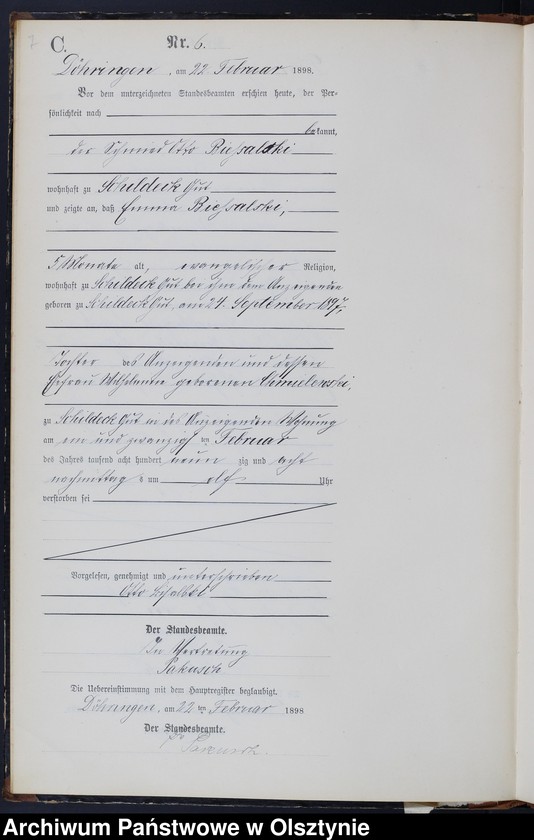 7
C.
Nr. 6.
Döhringen, am 22 Februar 1898.
Vor dem unterzeichneten Standesbeamten erschien heute, der Per-
sönlichkeit nach
bekannt,
der Schmied Otto Biessalski
wohnhaft zu Schildeck Gut
und zeigte an, daß Emma Biessalski,
5 Monate alt, evangelischer Religion,
wohnhaft zu Schildeck Gut bei ihm dem Anzeigenden
geboren zu Schildeck Gut, am 24. September 1897,
Tochter des Anzeigenden und dessen
Ehefrau Wilhelmine geborenen Chmielewski,
zu Schildeck Gut in des Anzeigenden Wohnung
am ein und zwanzigsten Februar
des Jahres tausend acht hundert neun zig und acht
nachmittags um elf Uhr
verstorben sei
Vorgelesen, genehmigt und unterschrieben
Otto
Der Standesbeamte.
In Vertretung
Die Uebereinstimmung mit dem Hauptregister beglaubigt.
Döhringen, am 22 ten Februar 1898
Der Standesbeamte.
Archiwum Państwowe w Olsztynie